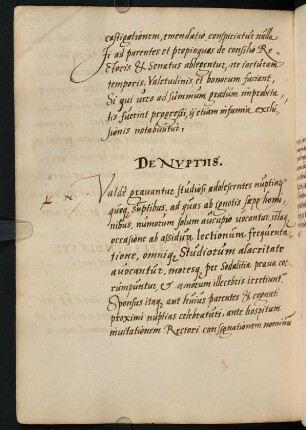 castigationem, emendatio conspiciatur nulla
ij ad parentes et propinquos de consilio Re-
ctoris & Senatus ablegentur, ne iacturam
temporis, Valetudinis, et bonorum faciant,
Si qui vero ad summum gradum improbita-
tis fuerint progressi, ij etiam infamia exclu-
sionis notabuntur.
DE NVPTIIS.
Valdè prauantur studiosi adolescentes nuptiaru
quoq sumptibus, ad quas ab ignotis saepe homi-
nibus, numorum solum aucupio uocantur, istaq
occasione ab assidua lectionum, frequenta-
tione, omniq Studiorum alacritate
auocantur, moresq per Sodalitia praua cor-
rumpuntur, & amorum illecebris irretiunt.
Sponsus itaq aut huius parentes & cognati
proximi nuptias celebraturi, ante hospitum
inuitationem Rectori consignationem nominum